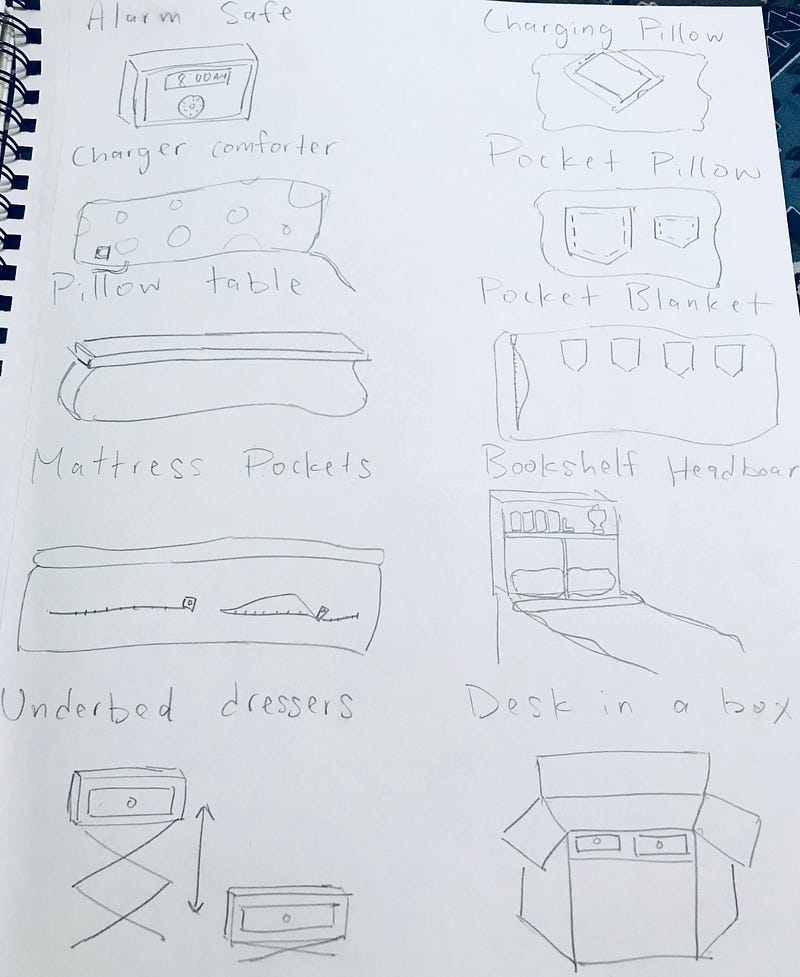 Alarm Safe
8:00AM
Charging Pillow
Charger comforter
Pocket Pillow
Pillow table
Pocket Blanket
Mattress Pockets
Bookshelf Headboar
Underbed dressers
Desk in a box